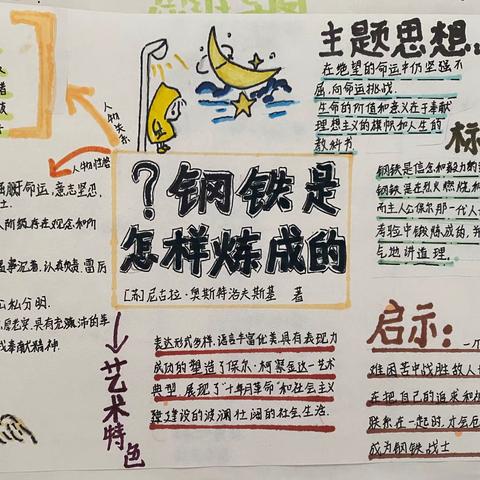 人物关系
人物性格
命运,意志坚忍,
人阶级存在观念和阶
事沉着,认真负责,雷厉
公私分明.
愿老实,具有充沛的革
奉献精神
?钢铁是
怎样炼成的
[苏]尼古拉·奥斯特洛夫斯基 著
主题思想:
在绝望的命运中仍坚强不
屈,向命运挑战.
生命的价值和意义在于奉献
理想主义的旗帜和人生的
教科书
标
钢铁是信念和毅力的
钢铁是在烈火燃烧和
而主人公保尔那一代人
考验中锻炼成的,并
与地讲道理.
艺术特色
表达形式多样,语言丰富优美具有表现力
成功的塑造了保尔·柯察金这一艺术
典型,展现了“十年月革命”和社会主义
建设的波澜壮阔的社会生活.
启示:
一个
难困苦中战胜敌人
在把自己的追求和
联系在一起的,才会
成为钢铁战士